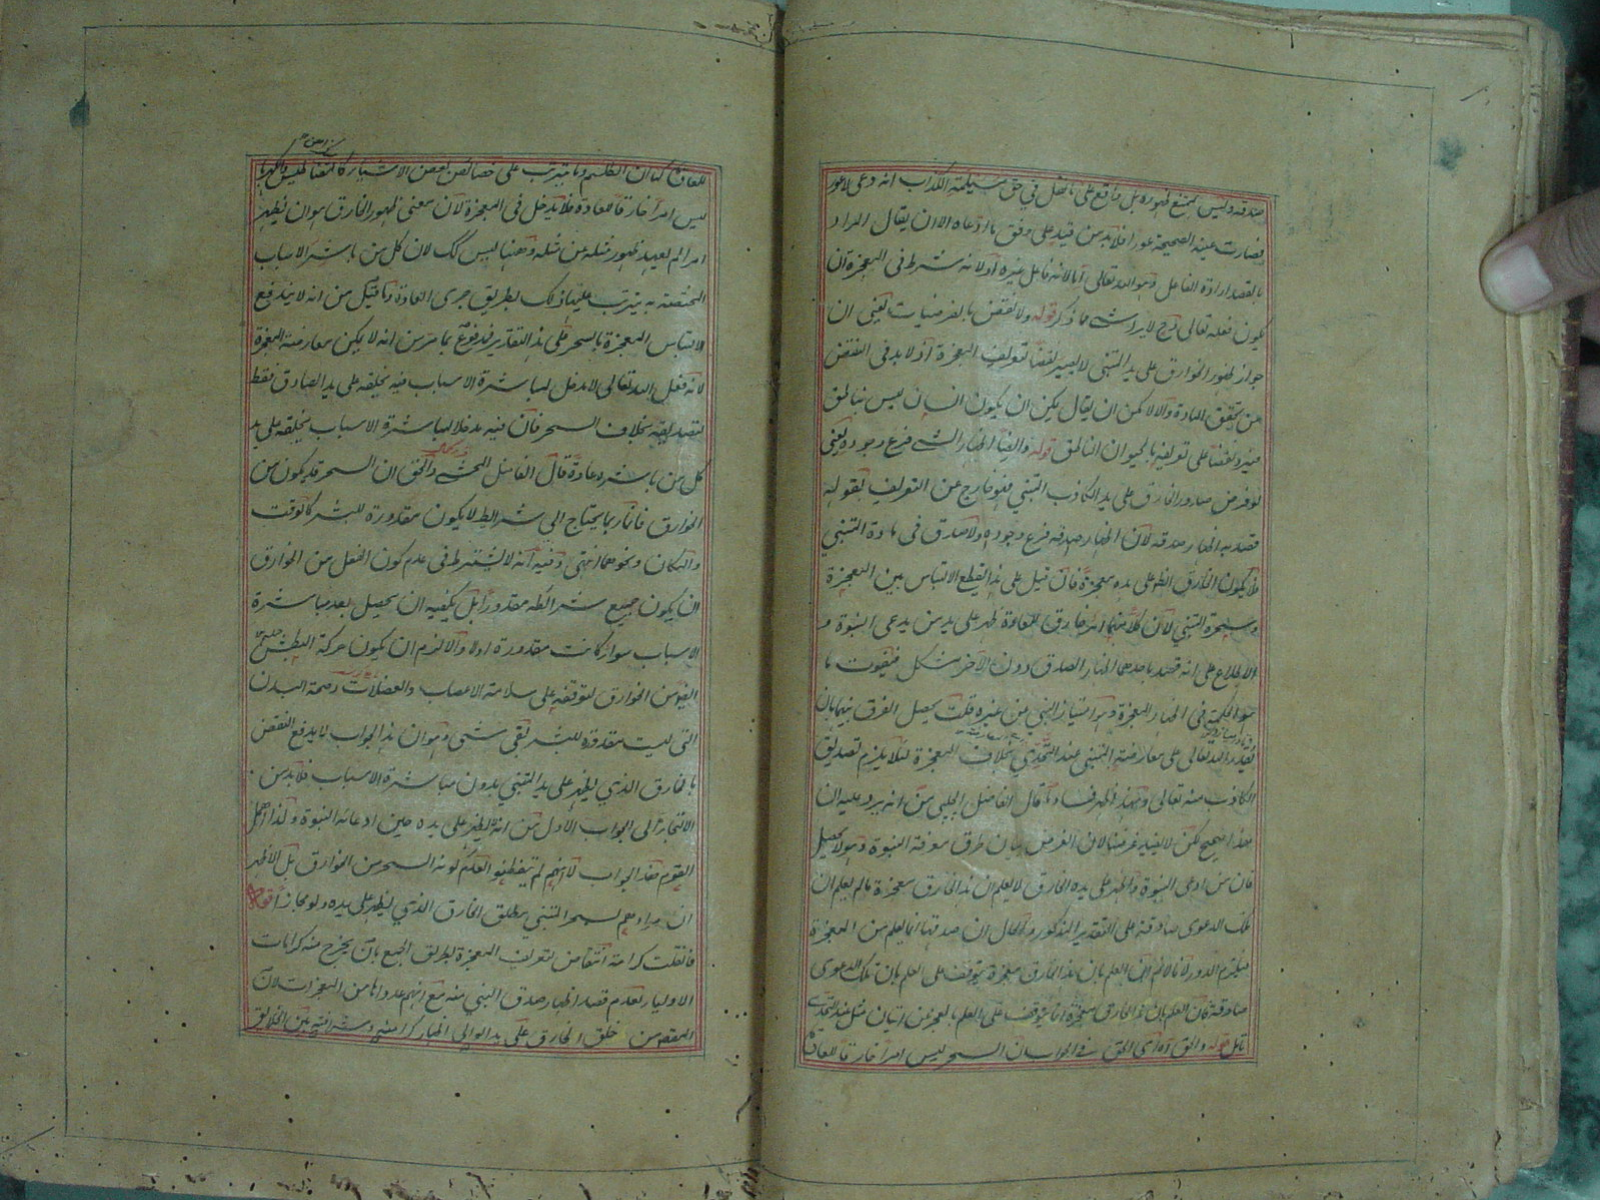 صدقه وليس بممتنع ظهوره بل واقع على ما نقل في حق مسيلمة الكذاب انه دعى لاعور
فصارت عينه الصحيحة عوراء فلابد من قيد على وفق ما ادعاه الا ان يقال المراد
بالقصد ارادة الفاعل وهو الله تعالى اما لانه فاعل غيره او لانه شرط فى المعجزة ان
يكون فعله تعالى لا يرد ما ذكر قوله ولا نقض بالفرضيات يعني ان
جواز ظهور الخوارق على يد المتنبي لا يصير نقضا لتعريف المعجزة اذ لابد فى النقض
من تحقق المادة والا لامكن ان يقال يمكن ان يكون انسان ليس بناطق
فيرد نقضا على تعريفه بالحيوان الناطق قوله وايضا اظهار الشئ فرع وجوده يعني
لو فرض صدور الخارق على يد الكاذب المتنبي فهو خارج عن التعريف بقوله
قصد به اظهار صدقه لان اظهار صدقه فرع وجوده ولا صدق فى مادة المتنبي
فلا يكون الخارق الظاهر على يده معجزة فان قيل على هذا لا ينقطع الالتباس بين المعجزة
وسحر المتنبي لان كلا منهما امر خارق للعادة ظهر على يد من يدعى النبوة و
الاطلاع على انه قصد باحدهما اظهار الصدق دون الآخر مشكل فيفوت ما
هو الحكمة فى اظهار المعجزة وهو امتياز النبي من غيره قلت يحصل الفرق بينهما بان
يقدر الله تعالى على معارضة المتنبي عند التحدي بخلاف المعجزة لئلا يلزم تصديق
الكاذب منه تعالى وبهذا ظهر فساد ما قال الفاضل الچلبي من انه يرد عليه ان
هذا صحيح لكن لا يفيد غرضنا لان الغرض بيان طرق معرفة النبوة وهو لا يحصل
فان من ادعى النبوة واظهر على يده الخارق لا يعلم ان هذا الخارق معجزة ما لم يعلم ان
تلك الدعوى صادقة على التقدير المذكور والحال ان صدقها انما يعلم من المعجزة
فيلزم الدور لانا لا نم ان العلم بان هذا الخارق معجزة يتوقف على العلم بان تلك الدعوى
صادقة فان العلم بان هذا الخارق معجزة انما يتوقف على العلم بالعجز عن اتيان مثله عند التحدي
تأمل قوله والحق آه اى الحق فى الجواب ان السحر ليس امرا خارقا للعادة
للعادة كما ان الطلسم وما يترتب على خصائص بعض الاشياء كالمقناطيس والكهرباء
ليس امرا خارقا للعادة فلا يدخل فى المعجزة لان معنى ظهور الخارق هو ان يظهر
امر لم يعهد ظهور مثله عن مثله وههنا ليس كك لان كل من باشر الاسباب
المختصة به يترتب عليها ذلك بطريق جرى العادة وما قيل من انه لا يندفع
التباس المعجزة بالسحر على هذا التقدير فمدفوع بما مر من انه لا يمكن معارضة المعجزة
لانه فعل الله تعالى لا مدخل لمباشرة الاسباب فيه يخلقه على يد الصادق فقط
لتصديقه بخلاف السحر فان فيه مدخلا لمباشرة الاسباب يخلقه على يد
كل من باشره عادة قال الفاضل المحشى والحق ان السحر قد يكون من
الخوارق فانه ربما يحتاج الى شرائط لا يكون مقدورة للبشر كالوقت
والمكان ونحوهما انتهى وفيه انه لا يشترط فى عدم كون الفعل من الخوارق
ان يكون جميع شرائطه مقدورا بل يكفيه ان يحصل بعد مباشرة
الاسباب سواء كانت مقدورة اولا والا لزم ان يكون حركة البطش
ايضا من الخوارق لتوقفه على سلامة الاعصاب والعضلات وصحة البدن
التى ليست مقدورة للبشر بقى شئ وهو ان هذا الجواب لا يدفع النقض
بالخارق الذي يظهر على يد المتنبي بدون مباشرة الاسباب فلابد من
الالتجاء الى الجواب الاول من انه لا يظهر على يده حين ادعائه النبوة ولذا اهمل
القوم هذا الجواب لا انهم لم يتفطنوا لعدم كونه السحر من الخوارق بل الاظهر
ان مرادهم لسحر المتنبي مطلق الخارق الذي يظهر على يده ولو مجازا قوله
فان قلت كرامة انتقاض لتعريف المعجزة بطريق الجمع بان يخرج منه كرامات
الاولياء لعدم قصد اظهار صدق النبي منه مع انهم عدوها من المعجزات لان
المقصود من خلق الخارق على يد الولى اظهار كرامته وشرافته بين الخلائق